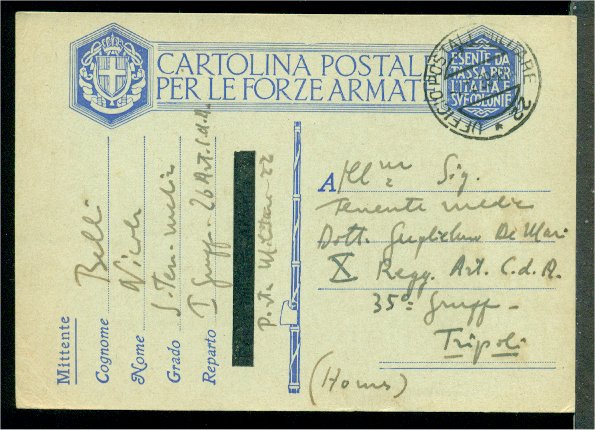 CARTOLINA POSTALE
PER LE FORZE ARMATE
ESENTE DA
TASSA PER
L'ITALIA E
SUE COLONIE
UFFICIO POSTALE MILITARE 22
Mittente
Cognome Belli
Nome Nicola
Grado S. Ten. medic
Reparto I Grupp. 26 Art. C.d.A.
Posta Militare 22
A Ill.mo Sig.
Tenente medic
Dott. Guglielmo De Mari
X Regg. Art. C.d.A.
35° Grupp
Tripoli
(Homs)